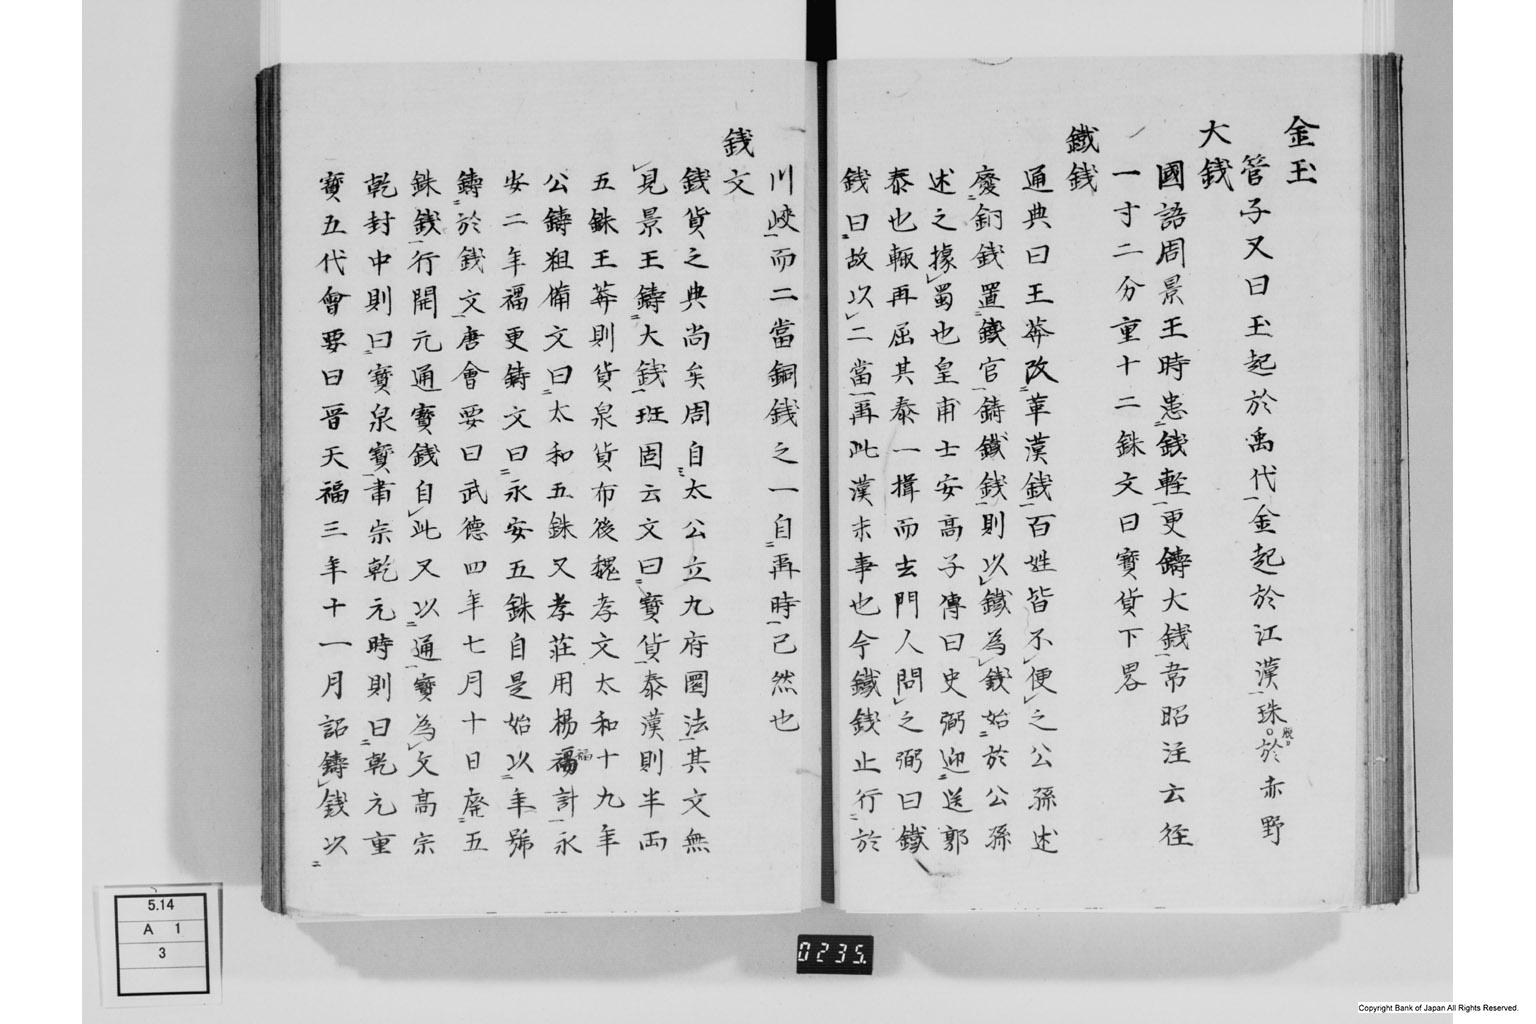 金玉
管子又曰玉起於禹代金起於江漢珠。於赤野
脱。
大銭
國語周景王時患銭軽更鑄大銭韋昭注云径
一寸二分重十二銖文曰寳貨下畧
鐵銭
通典曰王莽改革漢銭百姓皆不便之公孫述
廢銅銭置鐵官鑄鐵銭則以鐵為銭始於公孫
述之據蜀也皇甫士安高子傳曰史弼迎送郭
泰也輙再屈其泰一揖而去門人問之弼曰鐵
銭曰故以二當再此漢末事也今鐵銭止行於
川峡而二當銅銭之一自再時已然也
銭文
銭貨之典尚矣周自太公立九府圜法其文無
見景王鑄大銭班固云文曰寳貨泰漢則半両
五銖王莽則貨泉貨布後魏孝文太和十九年
公鑄狙備文曰太和五銖又孝荘用楊 計永
福
安二年福更鋳文曰永安五銖自是始以年號
鑄於銭文唐會要曰武德四年七月十日廃五
銖銭行開元通寳銭自此又以通寳為文高宗
乾封中則曰寳泉寳粛宗乾元時則曰乾元重
寳五代會要曰晋天福三年十一月詔鑄銭以
5.14
A 1
3
0235.
Copyright Bank of Japan All Rights Reserved.